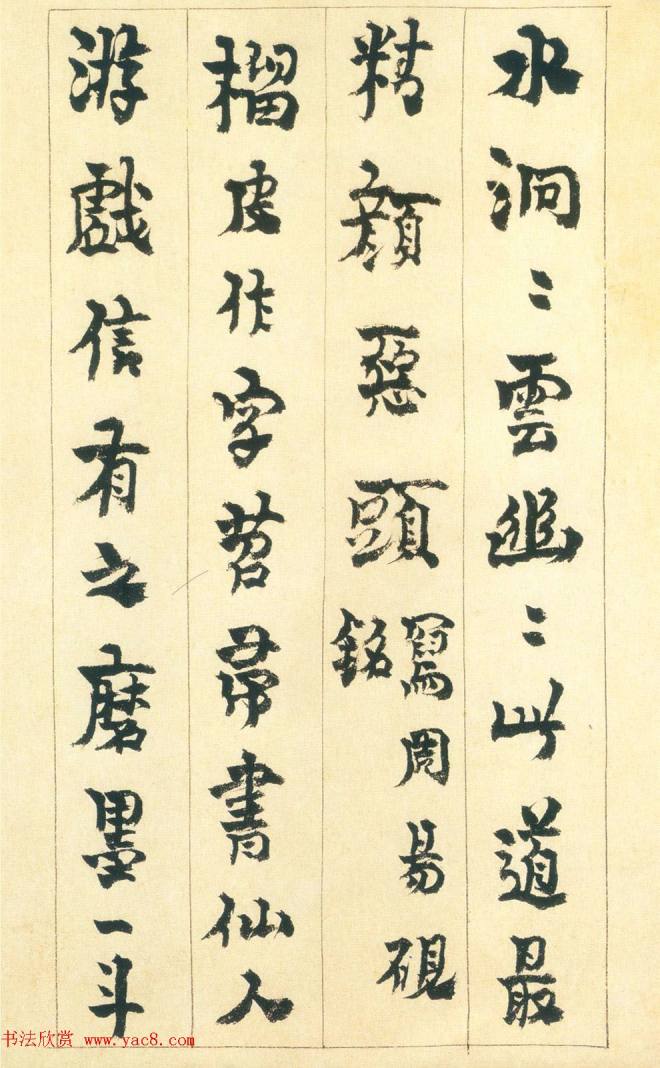 水泂〻雲幽〻此道最
精顏惡頭
寫周易硯
銘
榴皮作字苕帚書仙人
游戲信有之磨墨一斗
书法欣赏 www.yac8.com